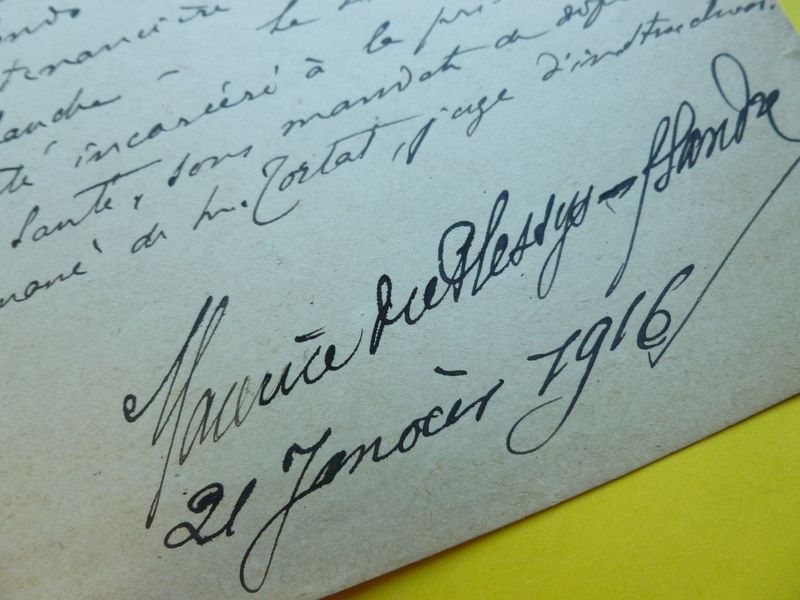 tenancière
incarcéré à la
Santé, sous mandat de
de M. Tortat, juge d'instruction.
Maurice du Plessys-Flandre
21 Janvier 1916